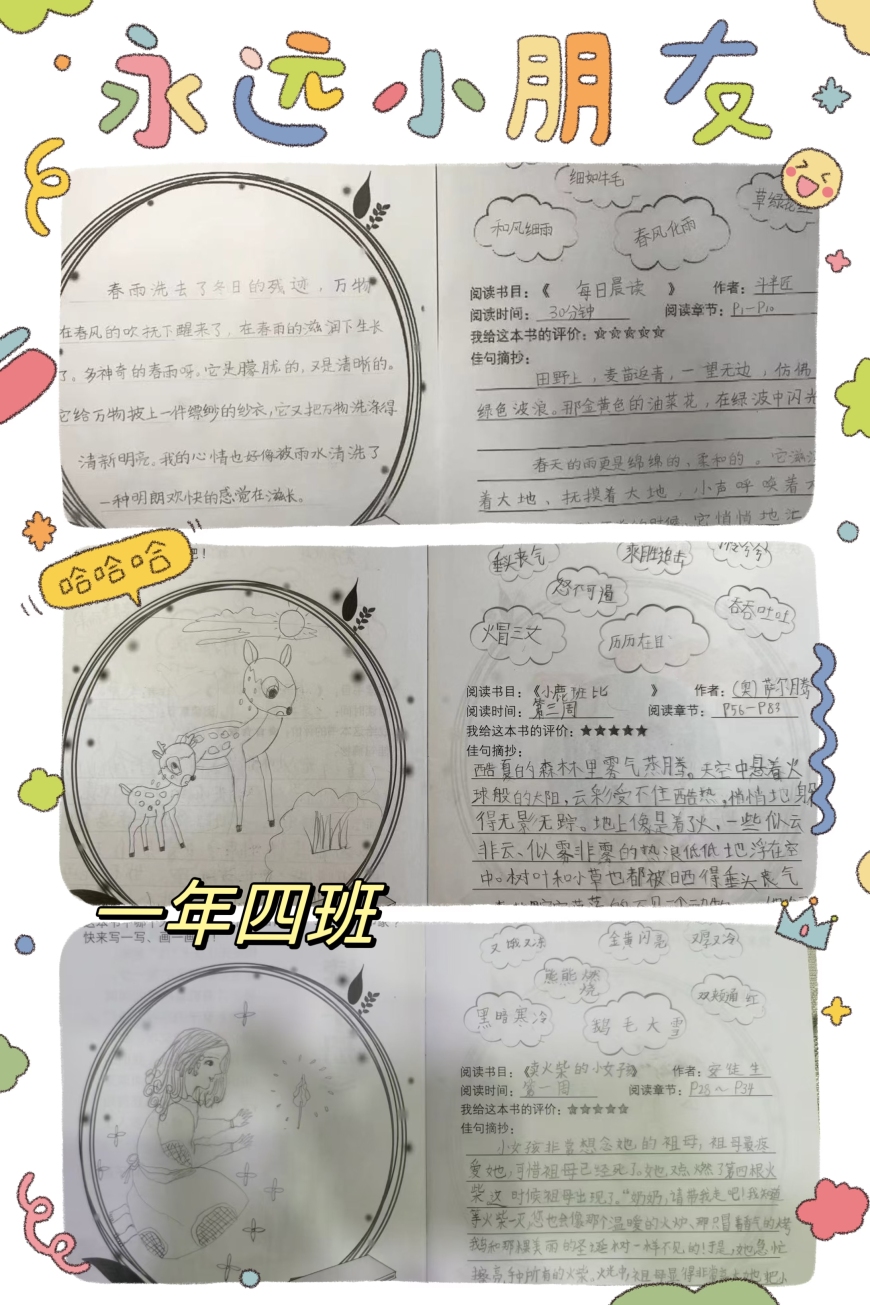 永远小朋友
细如牛毛
草绿花红
和风细雨
春风化雨
阅读书目：《每日晨读》 作者：斗半匠
阅读时间：30分钟 阅读章节：P1-P10
我给这本书的评价：☆☆☆☆☆
佳句摘抄：
田野上，麦苗返青，一望无边，仿佛
绿色波浪。那金黄色的油菜花，在绿波中闪光
春天的雨更是绵绵的、柔和的。它滋润
着大地、抚摸着大地，小声呼唤着大
春雨洗去了冬日的残迹，万物
在春风的吹抚下醒来了，在春雨的滋润下生长
了。多神奇的春雨呀。它是朦胧的，又是清晰的。
它给万物披上一件缥缈的纱衣，它又把万物洗涤得
清新明亮。我的心情也好像被雨水清洗了
一种明朗欢快的感觉在滋长。
哈哈哈
吧！
垂头丧气
乘胜追击
怒不可遏
吞吞吐吐
火冒三丈
历历在目
阅读书目：《小鹿班比》 作者：（奥）萨尔腾
阅读时间：第三周 阅读章节：P56-P83
我给这本书的评价：★★★★★
佳句摘抄：
酷夏的森林里雾气蒸腾。天空中悬着火
球般的太阳，云彩受不住酷热，悄悄地躲
得无影无踪。地上像是着了火，一些似云
非云、似雾非雾的热浪低低地浮在空
中。树叶和小草也都被晒得垂头丧气
一年四班
快来写一写、画一画吧！
又饿又冻
金黄闪亮
又厚又冷
熊熊燃烧
双颊通红
黑暗寒冷
鹅毛大雪
阅读书目：《卖火柴的小女孩》 作者：安徒生
阅读时间：第一周 阅读章节：P28～P34
我给这本书的评价：★★★★★
佳句摘抄：
小女孩非常想念她的祖母，祖母最疼
爱她，可惜祖母已经死了。她又点燃了第四根火
柴，这时候祖母出现了。“奶奶，请带我走吧！我知道
等火柴一灭，您也会像那个温暖的火炉、那只冒着香气的烤
鹅和那棵美丽的圣诞树一样不见的！于是，她急忙
擦亮